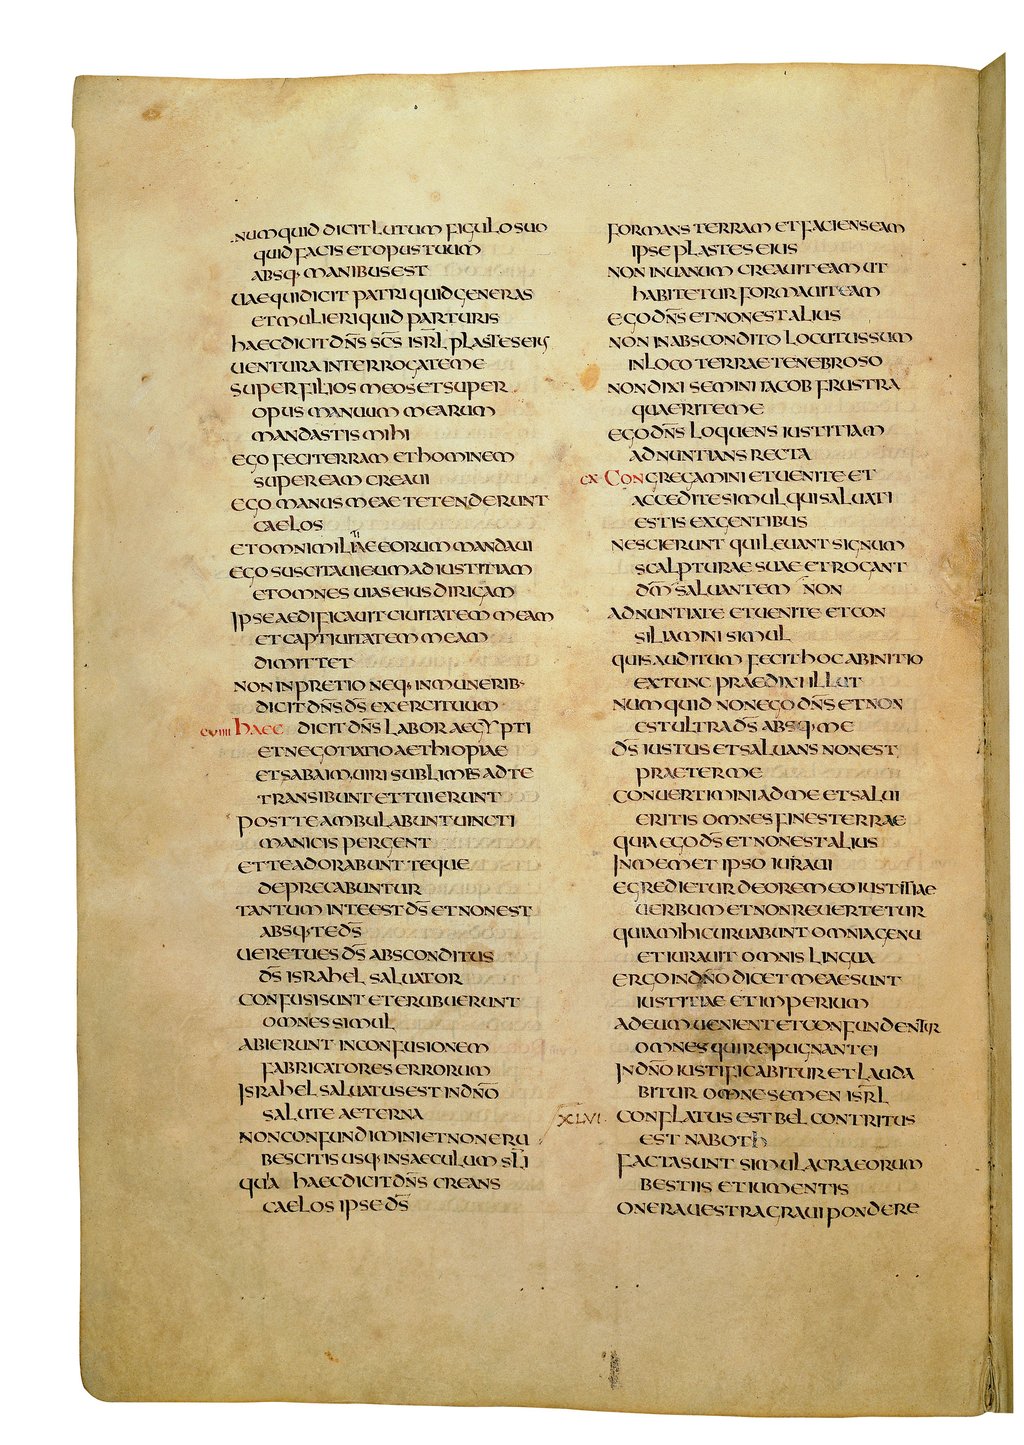 NUMQUID DICIT LUTUM FIGULO SUO
QUID FACIS ET OPUS TUUM
ABSQ· MANIBUS EST
UAE QUI DICIT PATRI QUID GENERAS
ET MULIERI QUID PARTURIS
HAEC DICIT DN̄S SC̄S ISRL̄ PLASTES EIUS
UENTURA INTERROGATE ME
SUPER FILIOS MEOS ET SUPER
OPUS MANUUM MEARUM
MANDASTIS MIHI
EGO FECI TERRAM ET HOMINEM
SUPER EAM CREAUI
EGO MANUS MEAE TETENDERUNT
CAELOS
ET OMNI MILITIAE EORUM MANDAUI
EGO SUSCITAUI EUM AD IUSTITIAM
ET OMNES UIAS EIUS DIRIGAM
IPSE AEDIFICAUIT CIUITATEM MEAM
ET CAPTIUITATEM MEAM
DIMITTET
NON IN PRETIO NEQ· IN MUNERIB·
DICIT DN̄S DS̄ EXERCITUUM
CVIIII HAEC DICIT DN̄S LABOR AEGYPTI
ET NEGOTIATIO AETHIOPIAE
ET SABAIM UIRI SUBLIMES AD TE
TRANSIBUNT ET TUI ERUNT
POST TE AMBULABUNT UINCTI
MANICIS PERGENT
ET TE ADORABUNT TEQUE
DEPRECABUNTUR
TANTUM IN TE EST DS̄ ET NON EST
ABSQ· TE DS̄
UERE TU ES DS̄ ABSCONDITUS
DS̄ ISRAHEL SALUATOR
CONFUSI SUNT ET ERUBUERUNT
OMNES SIMUL
ABIERUNT IN CONFUSIONEM
FABRICATORES ERRORUM
ISRAHEL SALUATUS EST IN DN̄O
SALUTE AETERNA
NON CONFUNDIMINI ET NON ERU
BESCITIS USQ· IN SAECULUM SL̄I
QUIA HAEC DICIT DN̄S CREANS
CAELOS IPSE DS̄
FORMANS TERRAM ET FACIENS EAM
IPSE PLASTES EIUS
NON IN UANUM CREAUIT EAM UT
HABITETUR FORMAUIT EAM
EGO DN̄S ET NON EST ALIUS
NON IN ABSCONDITO LOCUTUS SUM
IN LOCO TERRAE TENEBROSO
NON DIXI SEMINI IACOB FRUSTRA
QUAERITE ME
EGO DN̄S LOQUENS IUSTITIAM
ADNUNTIANS RECTA
CX· CONGREGAMINI ET UENITE ET
ACCEDITE SIMUL QUI SALUATI
ESTIS EX GENTIBUS
NESCIERUNT QUI LEUANT SIGNUM
SCALPTURAE SUAE ET ROGANT
DM̄ SALUANTEM NON
ADNUNTIATE ET UENITE ET CON
SILIAMINI SIMUL
QUIS AUDITUM FECIT HOC AB INITIO
EX TUNC PRAEDIXIT ILLUT
NUMQUID NON EGO DN̄S ET NON
EST ULTRA DS̄ ABSQ· ME
DS̄ IUSTUS ET SALUANS NON EST
PRAETER ME
CONUERTIMINI AD ME ET SALUI
ERITIS OMNES FINES TERRAE
QUIA EGO DS̄ ET NON EST ALIUS
IN MEMET IPSO IURAUI
EGREDIETUR DE ORE MEO IUSTITIAE
UERBUM ET NON REUERTETUR
QUIA MIHI CURUABUNT OMNIA GENU
ET IURAUIT OMNIS LINGUA
ERGO IN DN̄O DICET MEAE SUNT
IUSTITIAE ET IMPERIUM
AD EUM UENIENT ET CONFUNDENTUR
OMNES QUI REPUGNANT EI
IN DN̄O IUSTIFICABITUR ET LAUDA
BITUR OMNE SEMEN ISRL̄
XLVI· CONFLATUS EST BEL CONTRITUS
EST NABOTH
FACTA SUNT SIMULACRA EORUM
BESTIIS ET IUMENTIS
ONERA UESTRA GRAUI PONDERE